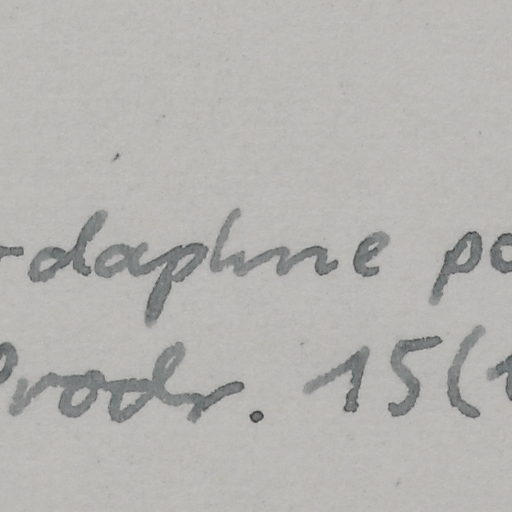 daphne po
Prodr. 15(1